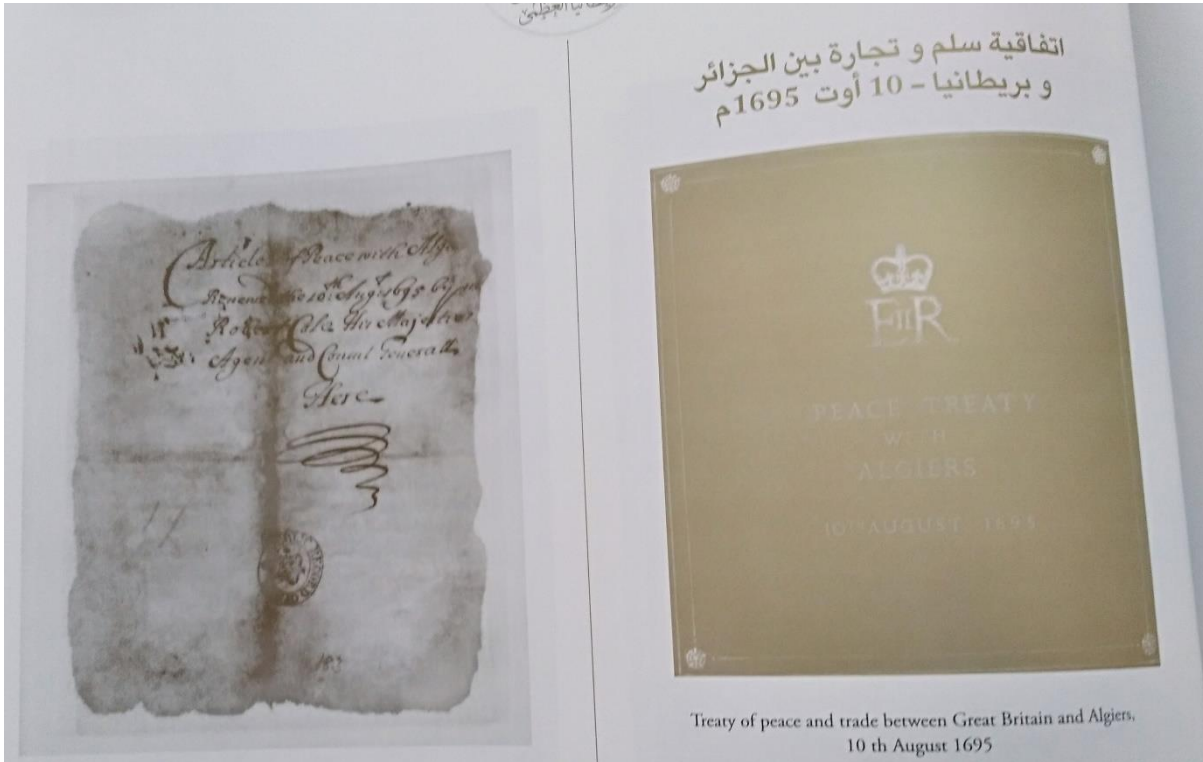 بريطانيا العظمى
Articles of Peace with
Renewed the 10th Augt 1695 by
Robert Cole His Majesties
Agent and Consul Generall
Here
اتفاقية سلم و تجارة بين الجزائر
و بريطانيا - 10 أوت 1695م
EIIR
PEACE TREATY
WITH
ALGIERS
10TH AUGUST 1695
Treaty of peace and trade between Great Britain and Algiers,
10 th August 1695